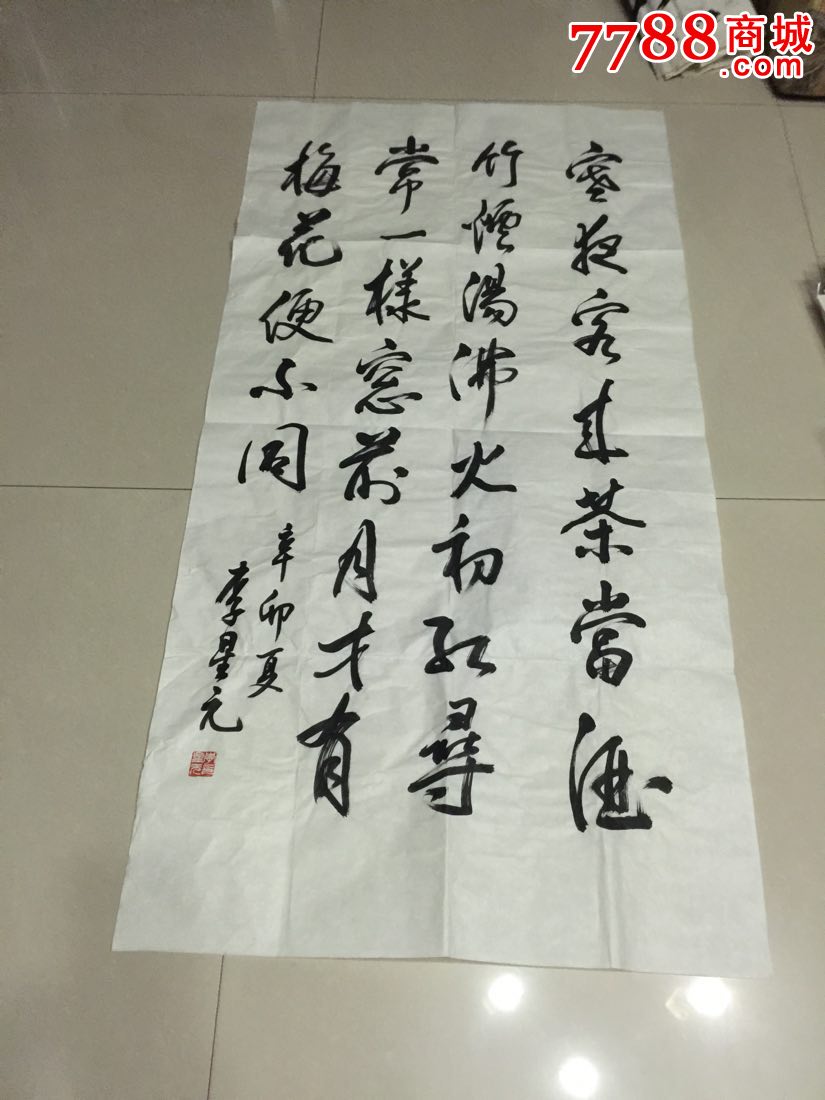 7788商城
.com
寒夜客来茶當酒
竹爐湯沸火初紅尋
常一樣窓前月才有
梅花便不同
辛卯夏
李星元